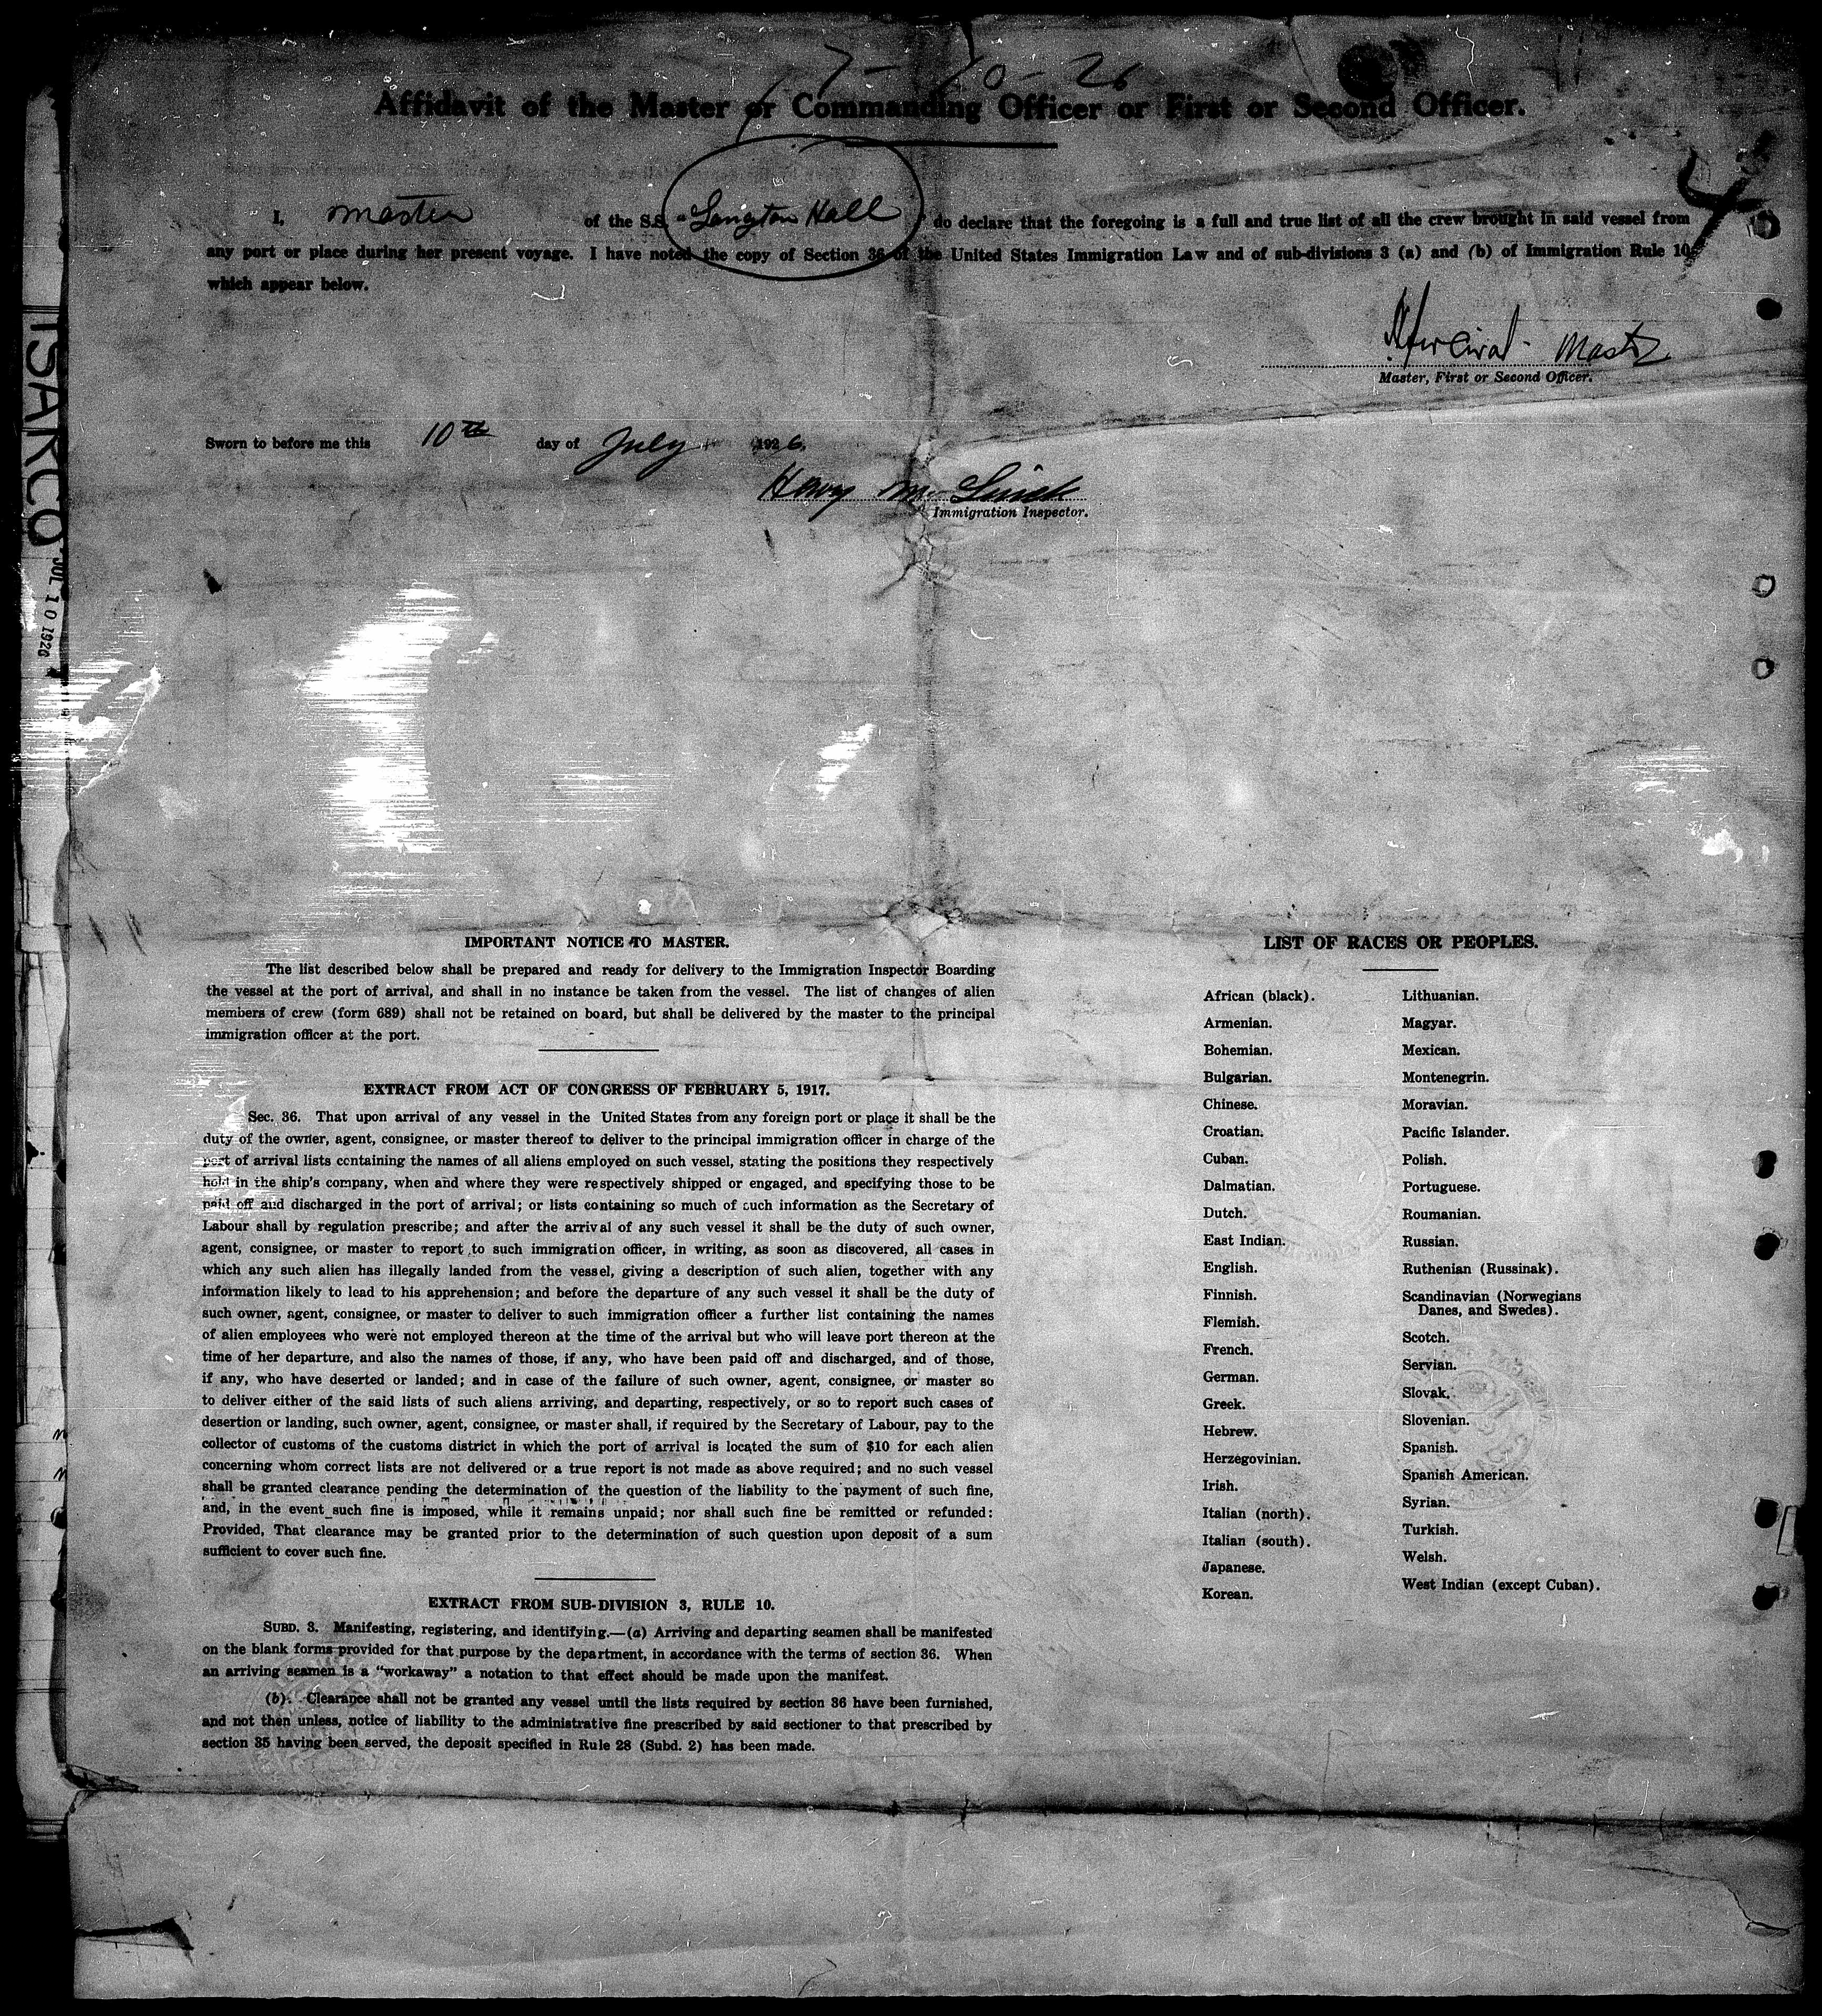 7-10-26
Affidavit of the Master or Commanding Officer or First or Second Officer.
I, master of the S.S. "Langton Hall" do declare that the foregoing is a full and true list of all the crew brought in said vessel from
any port or place during her present voyage. I have noted the copy of Section 36 of the United States Immigration Law and of sub-divisions 3 (a) and (b) of Immigration Rule 10,
which appear below.
Master
Master, First or Second Officer.
Sworn to before me this 10th day of July 1926.
Immigration Inspector.
ISARCO
JUL 10 1926
IMPORTANT NOTICE TO MASTER.
The list described below shall be prepared and ready for delivery to the Immigration Inspector Boarding
the vessel at the port of arrival, and shall in no instance be taken from the vessel. The list of changes of alien
members of crew (form 689) shall not be retained on board, but shall be delivered by the master to the principal
immigration officer at the port.
EXTRACT FROM ACT OF CONGRESS OF FEBRUARY 5, 1917.
Sec. 36. That upon arrival of any vessel in the United States from any foreign port or place it shall be the
duty of the owner, agent, consignee, or master thereof to deliver to the principal immigration officer in charge of the
port of arrival lists containing the names of all aliens employed on such vessel, stating the positions they respectively
hold in the ship's company, when and where they were respectively shipped or engaged, and specifying those to be
paid off and discharged in the port of arrival; or lists containing so much of such information as the Secretary of
Labour shall by regulation prescribe; and after the arrival of any such vessel it shall be the duty of such owner,
agent, consignee, or master to report to such immigration officer, in writing, as soon as discovered, all cases in
which any such alien has illegally landed from the vessel, giving a description of such alien, together with any
information likely to lead to his apprehension; and before the departure of any such vessel it shall be the duty of
such owner, agent, consignee, or master to deliver to such immigration officer a further list containing the names
of alien employees who were not employed thereon at the time of the arrival but who will leave port thereon at the
time of her departure, and also the names of those, if any, who have been paid off and discharged, and of those,
if any, who have deserted or landed; and in case of the failure of such owner, agent, consignee, or master so
to deliver either of the said lists of such aliens arriving, and departing, respectively, or so to report such cases of
desertion or landing, such owner, agent, consignee, or master shall, if required by the Secretary of Labour, pay to the
collector of customs of the customs district in which the port of arrival is located the sum of $10 for each alien
concerning whom correct lists are not delivered or a true report is not made as above required; and no such vessel
shall be granted clearance pending the determination of the question of the liability to the payment of such fine,
and, in the event such fine is imposed, while it remains unpaid; nor shall such fine be remitted or refunded:
Provided, That clearance may be granted prior to the determination of such question upon deposit of a sum
sufficient to cover such fine.
EXTRACT FROM SUB-DIVISION 3, RULE 10.
SUBD. 3. Manifesting, registering, and identifying.—(a) Arriving and departing seamen shall be manifested
on the blank forms provided for that purpose by the department, in accordance with the terms of section 36. When
an arriving seamen is a "workaway" a notation to that effect should be made upon the manifest.
(b). Clearance shall not be granted any vessel until the lists required by section 36 have been furnished,
and not then unless, notice of liability to the administrative fine prescribed by said sectioner to that prescribed by
section 35 having been served, the deposit specified in Rule 28 (Subd. 2) has been made.
LIST OF RACES OR PEOPLES.
African (black).
Armenian.
Bohemian.
Bulgarian.
Chinese.
Croatian.
Cuban.
Dalmatian.
Dutch.
East Indian.
English.
Finnish.
Flemish.
French.
German.
Greek.
Hebrew.
Herzegovinian.
Irish.
Italian (north).
Italian (south).
Japanese.
Korean.
Lithuanian.
Magyar.
Mexican.
Montenegrin.
Moravian.
Pacific Islander.
Polish.
Portuguese.
Roumanian.
Russian.
Ruthenian (Russinak).
Scandinavian (Norwegians
Danes, and Swedes).
Scotch.
Servian.
Slovak.
Slovenian.
Spanish.
Spanish American.
Syrian.
Turkish.
Welsh.
West Indian (except Cuban).